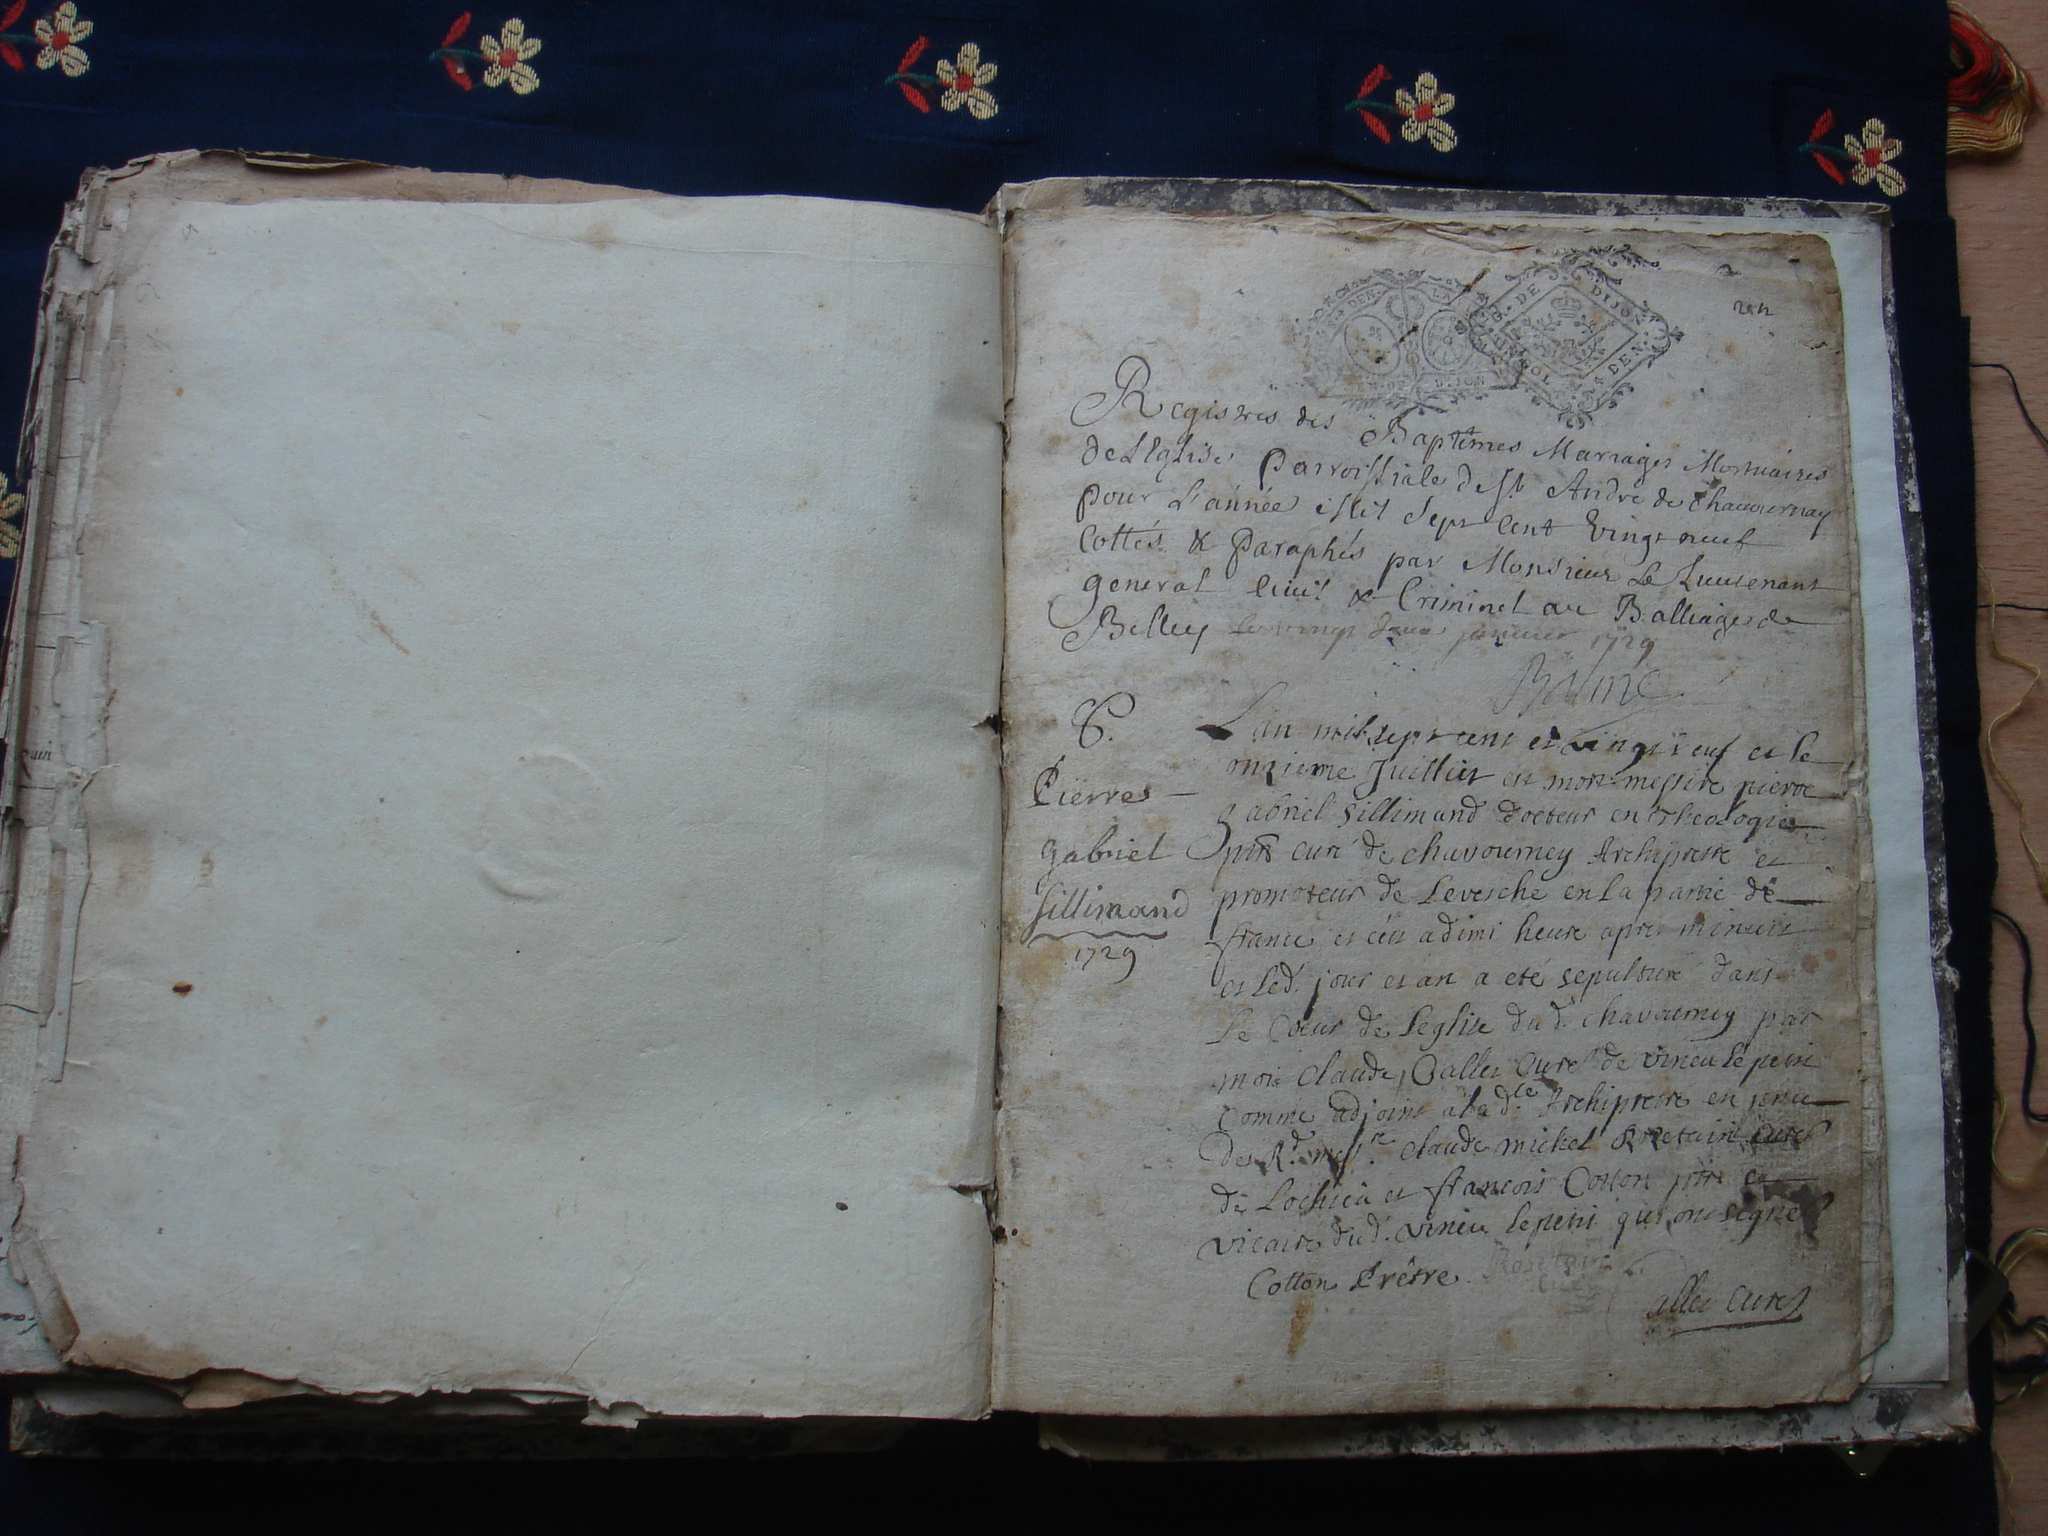 Registres des Baptêmes Mariages Mortuaires
de L'Eglise Parroissiale de St. André de chavournay
pour L'année Mil Sept Cent Vingt neuf
Cottés & Paraphés par Monsieur Le Lieutenant
general Civil & Criminel au Balliage de
Belley Le vingt deux janvier 1729
Balme
S.
Pierre
gabriel
Sillimand
1729
L'an mil sept cent et vingt neuf et le
onzieme Juillet est mort messire pierre
gabriel Sillimand docteur en Theologie
ptre curé de chavourney Archiprestre et
promoteur de Levesché en la partie de
france et ceci a demi heure apres minuit
et led. jour et an a eté sepulturé dans
Le Coeur de Leglise dud. chavourney par
moi Claude allet Curé de vineu le petit
Comme adjoint a la dte Archiprestre en
Des Rd. messre. Claude michel Curé
de Lochieu et francois Cotton ptre et
vicaire dud. vineu le petit qui ont signé
Cotton Prêtre
allet Curé
DIJON
G. DE
DEN.